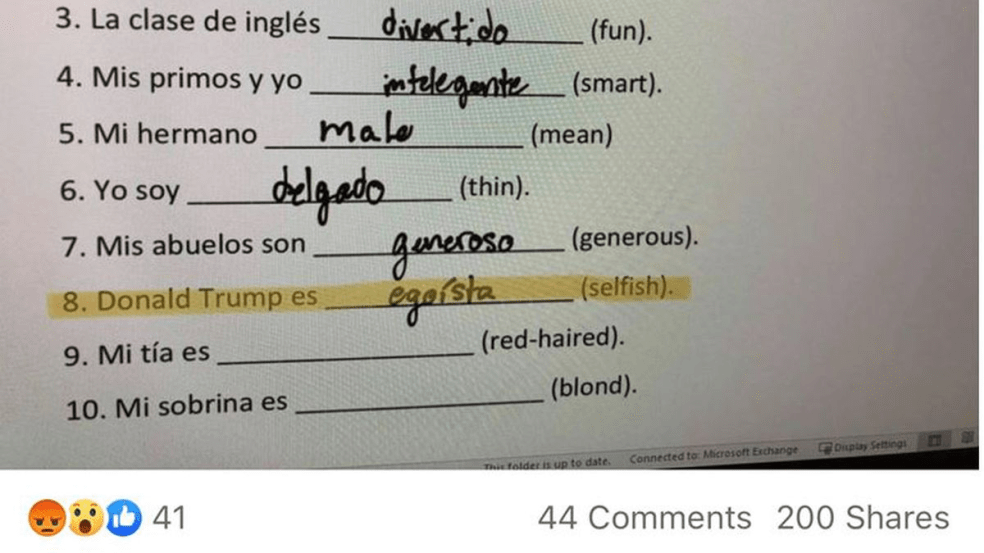 3. La clase de inglés divertido (fun).
4. Mis primos y yo intelegante (smart).
5. Mi hermano malo (mean)
6. Yo soy delgado (thin).
7. Mis abuelos son generoso (generous).
8. Donald Trump es egoísta (selfish).
9. Mi tía es (red-haired).
10. Mi sobrina es (blond).
This folder is up to date. Connected to: Microsoft Exchange Display Settings
41 44 Comments 200 Shares